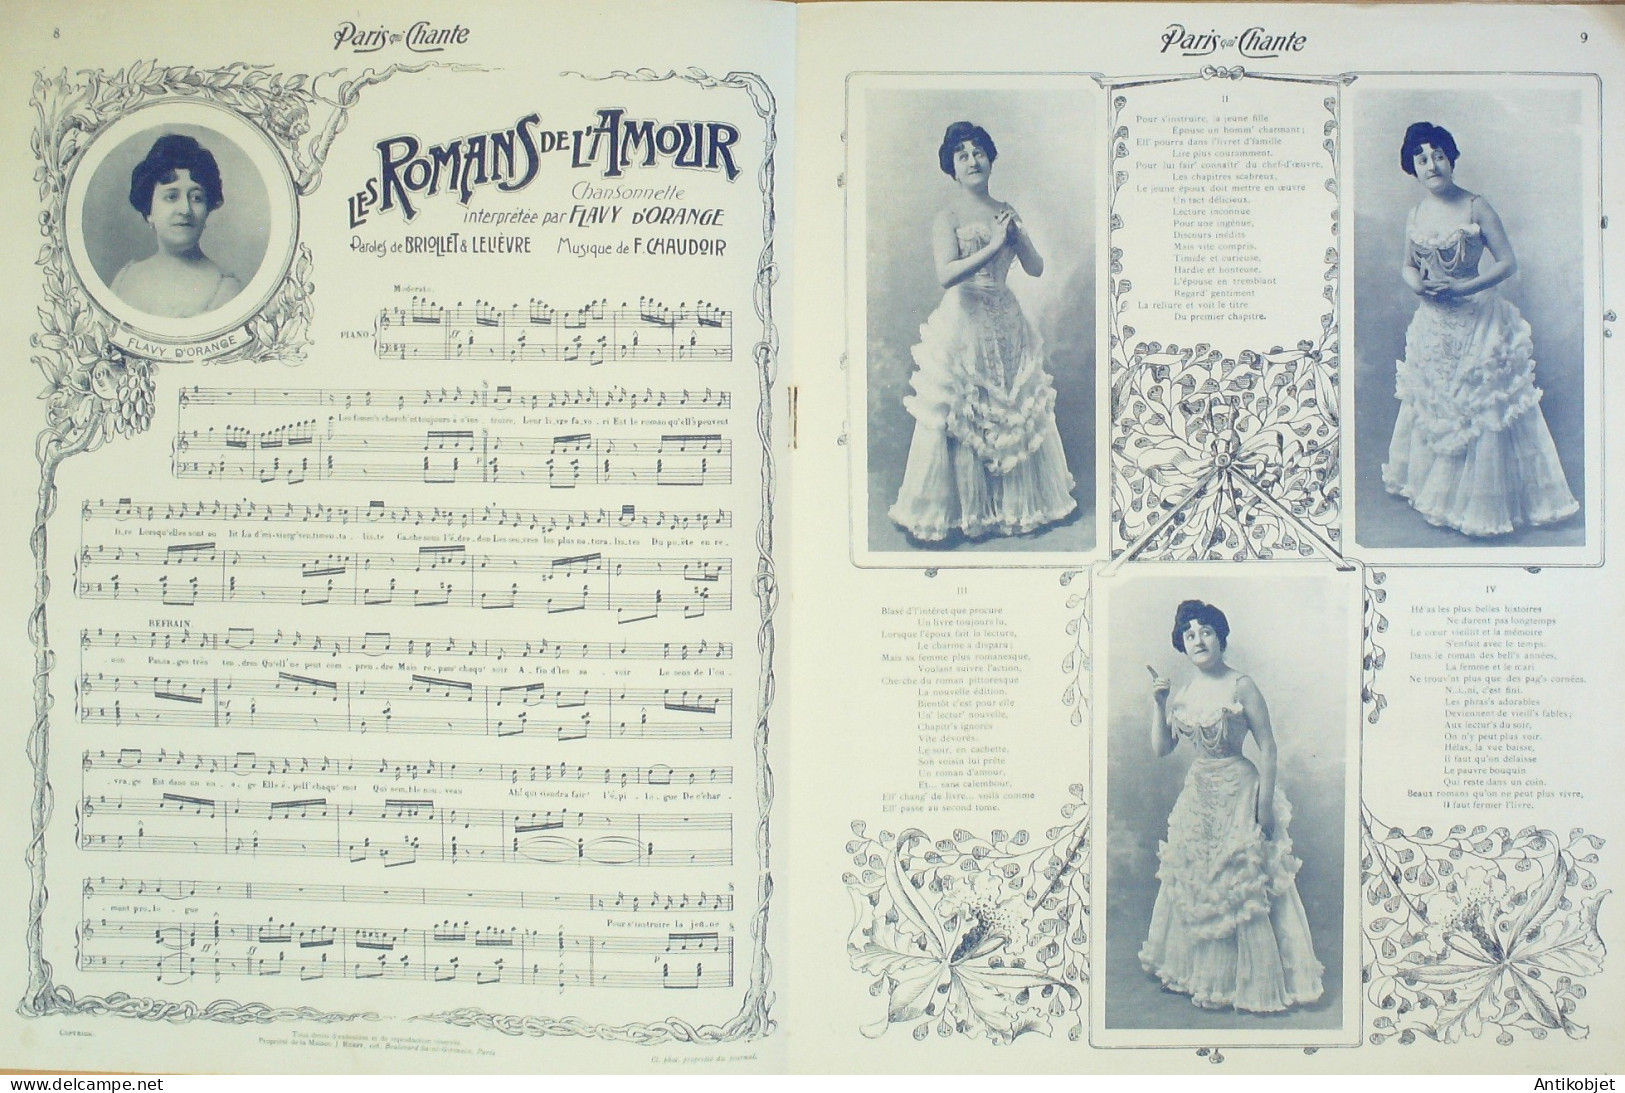 8
Paris qui Chante
LES ROMANS DE L'AMOUR
Chansonnette
interprétée par FLAVY D'ORANGE
Paroles de BRIOLLET & LELIÈVRE
Musique de F. CHAUDOIR
FLAVY D'ORANGE
Moderato.
PIANO
ff
Les femm's cherch'nt toujours à s'ins_ truire, Leur li_vre fa_vo_ ri Est le roman qu'ell's peuvent
li_re Lorsqu'elles sont au lit La d'mi-vierg' sentimen_ta_ lis_te Cache sous l'é_dre_don Les œu_vres les plus na_tura_lis_tes Du poète en re_
REFRAIN.
_nom Passa_ges très ten_dres Qu'ell' ne peut com_pren_dre Mais re_pass' chaqu' soir A_fin d'les sa_voir Le sens de l'ou_
mf
_vra_ge Est dans un nu_a_ge Elle é_pell' chaqu' mot Qui sem_ble nou_veau Ah! qui viendra fair' l'é_pi_lo_gue De c'char_
_mant pro_lo_gue
Pour s'instruire la jeune
ff
ff
p
COPYRIGHT.
Tous droits d'exécution et de reproduction réservés.
Propriété de la Maison J. RUEFF, 106, Boulevard Saint-Germain, Paris
Cl. phot. propriété du journal.
Paris qui Chante
9
II
Pour s'instruire, la jeune fille
Épouse un homm' charmant;
Ell' pourra dans l'livret d'famille
Lire plus couramment.
Pour lui fair' connaîtr' du chef-d'œuvre,
Les chapitres scabreux,
Le jeune époux doit mettre en œuvre
Un tact délicieux.
Lecture inconnue
Pour une ingénue,
Discours inédits
Mais vite compris.
Timide et curieuse,
Hardie et honteuse,
L'épouse en tremblant
Regard' gentiment
La reliure et voit le titre
Du premier chapitre.
III
Blasé d'l'intérêt que procure
Un livre toujours lu,
Lorsque l'époux fait la lecture,
Le charme a disparu;
Mais sa femme plus romanesque,
Voulant suivre l'action,
Cherche du roman pittoresque
La nouvelle édition.
Bientôt c'est pour elle
Un' lectur' nouvelle,
Chapitr's ignorés
Vite dévorés.
Le soir, en cachette,
Son voisin lui prête
Un roman d'amour,
Et... sans calembour,
Ell' chang' de livre... voilà comme
Ell' passe au second tome.
IV
Hélas les plus belles histoires
Ne durent pas longtemps
Le cœur vieillit et la mémoire
S'enfuit avec le temps.
Dans le roman des bell's années,
La femme et le mari
Ne trouv'nt plus que des pag's cornées.
N..i..ni, c'est fini.
Les phras's adorables
Deviennent de vieill's fables;
Aux lectur's du soir,
On n'y peut plus voir.
Hélas, la vue baisse,
Il faut qu'on délaisse
Le pauvre bouquin
Qui reste dans un coin.
Beaux romans qu'on ne peut plus vivre,
Il faut fermer l'livre.
delcampe.net
Antikobjet